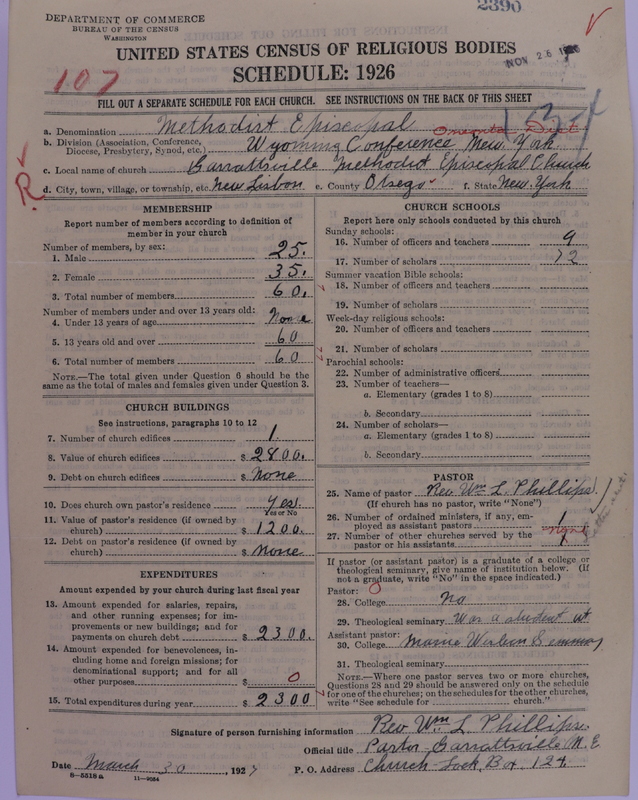 DEPARTMENT OF COMMERCE
BUREAU OF THE CENSUS
WASHINGTON
2390
UNITED STATES CENSUS OF RELIGIOUS BODIES
SCHEDULE: 1926
NOV 26
107
FILL OUT A SEPARATE SCHEDULE FOR EACH CHURCH. SEE INSTRUCTIONS ON THE BACK OF THIS SHEET
a. Denomination Methodist Episcopal Oneonta Dist
b. Division (Association, Conference, Diocese, Presbytery, Synod, etc.) Wyoming Conference New York
c. Local name of church Garrattsville Methodist Episcopal Church
d. City, town, village, or township, etc. New Lisbon e. County Otsego f. State New York
R
MEMBERSHIP
Report number of members according to definition of
member in your church
Number of members, by sex:
1. Male 25.
2. Female 35.
3. Total number of members 60.
Number of members under and over 13 years old:
4. Under 13 years of age None
5. 13 years old and over 60
6. Total number of members 60
NOTE.—The total given under Question 6 should be the
same as the total of males and females given under Question 3.
CHURCH BUILDINGS
See instructions, paragraphs 10 to 12
7. Number of church edifices 1
8. Value of church edifices $ 2800.
9. Debt on church edifices $ None
10. Does church own pastor's residence Yes
Yes or No
11. Value of pastor's residence (if owned by
church) $ 1200.
12. Debt on pastor's residence (if owned by
church) $ None
EXPENDITURES
Amount expended by your church during last fiscal year
13. Amount expended for salaries, repairs,
and other running expenses; for im-
provements or new buildings; and for
payments on church debt $ 2300.
14. Amount expended for benevolences, in-
cluding home and foreign missions; for
denominational support; and for all
other purposes $ 0
15. Total expenditures during year $ 2300
CHURCH SCHOOLS
Report here only schools conducted by this church
Sunday schools:
16. Number of officers and teachers 9
17. Number of scholars 72
Summer vacation Bible schools:
18. Number of officers and teachers
19. Number of scholars
Week-day religious schools:
20. Number of officers and teachers
21. Number of scholars
Parochial schools:
22. Number of administrative officers
23. Number of teachers—
a. Elementary (grades 1 to 8)
b. Secondary
24. Number of scholars—
a. Elementary (grades 1 to 8)
b. Secondary
PASTOR
25. Name of pastor Rev Wm L. Phillips
(If church has no pastor, write "None")
26. Number of ordained ministers, if any, em-
ployed as assistant pastors 1
27. Number of other churches served by the
pastor or his assistants none 1
If pastor (or assistant pastor) is a graduate of a college or
theological seminary, give name of institution below. (If
not a graduate, write "No" in the space indicated.)
Pastor: 0
28. College No
29. Theological seminary Was a student at
Assistant pastor:
30. College
31. Theological seminary
NOTE.—Where one pastor serves two or more churches,
Questions 28 and 29 should be answered only on the schedule
for one of the churches; on the schedules for the other churches,
write "See schedule for church."
Signature of person furnishing information Rev Wm L Phillips
Official title Pastor Garrattsville M. E
Date March 30, 1927 P. O. Address Church - Lock Box 124.
8—5518a 11—9034